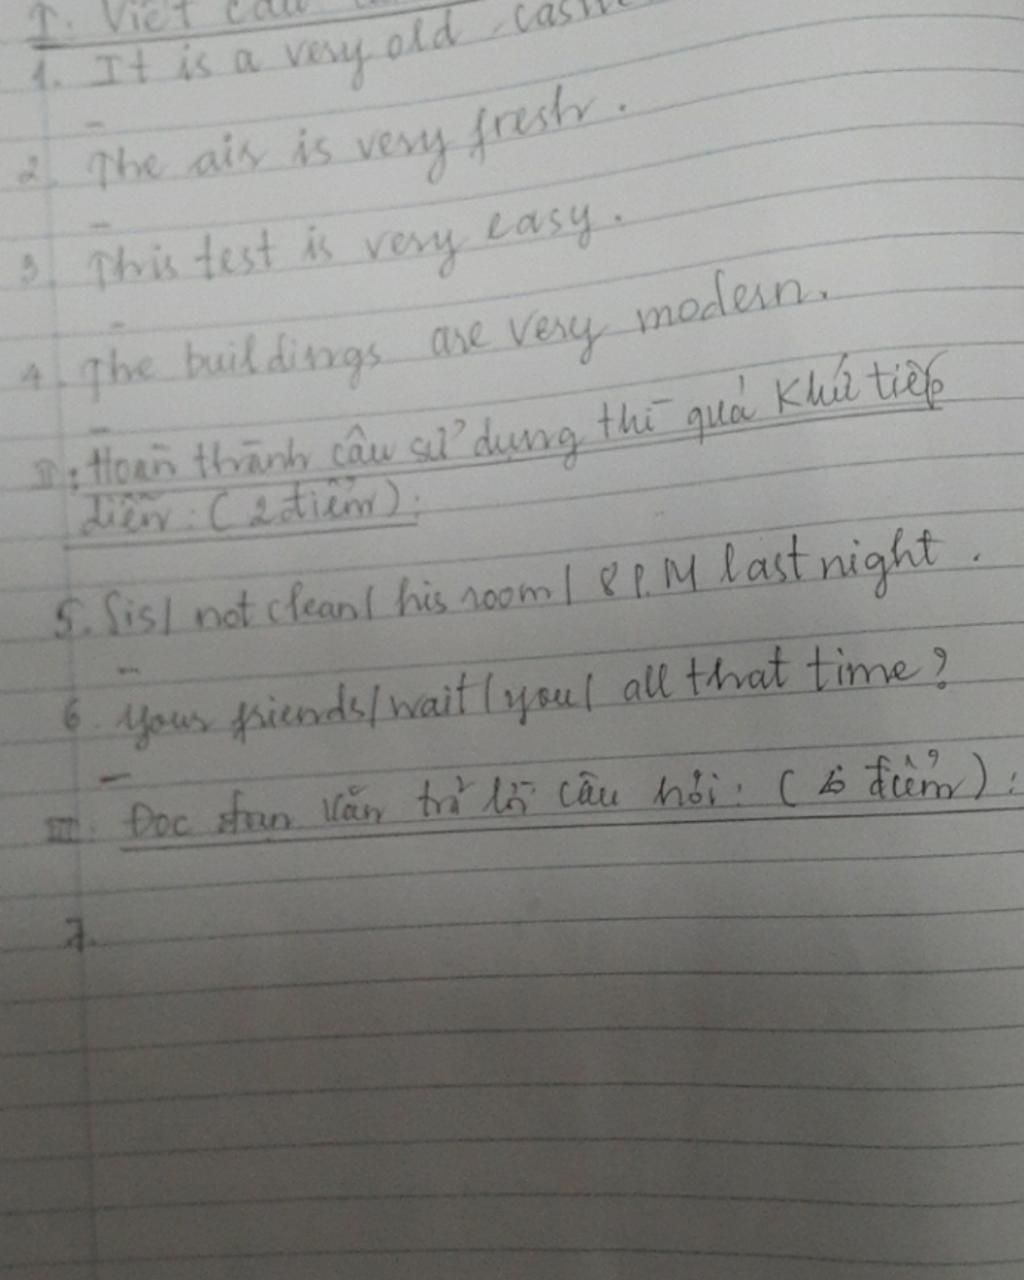 I. Viết câu
1. It is a very old castle
-
2. The air is very fresh.
-
3 This test is very easy.
-
4. The buildings are very modern.
-
II: Hoàn thành câu sử dụng thì quá khứ tiếp
diễn: (2 điểm):
5. Sis/ not clean/ his room/ 8 P.M last night.
-
6. Your friends/wait/you/ all that time?
-
III: Đoc đoan văn trả lời câu hỏi: ( điểm):
7.